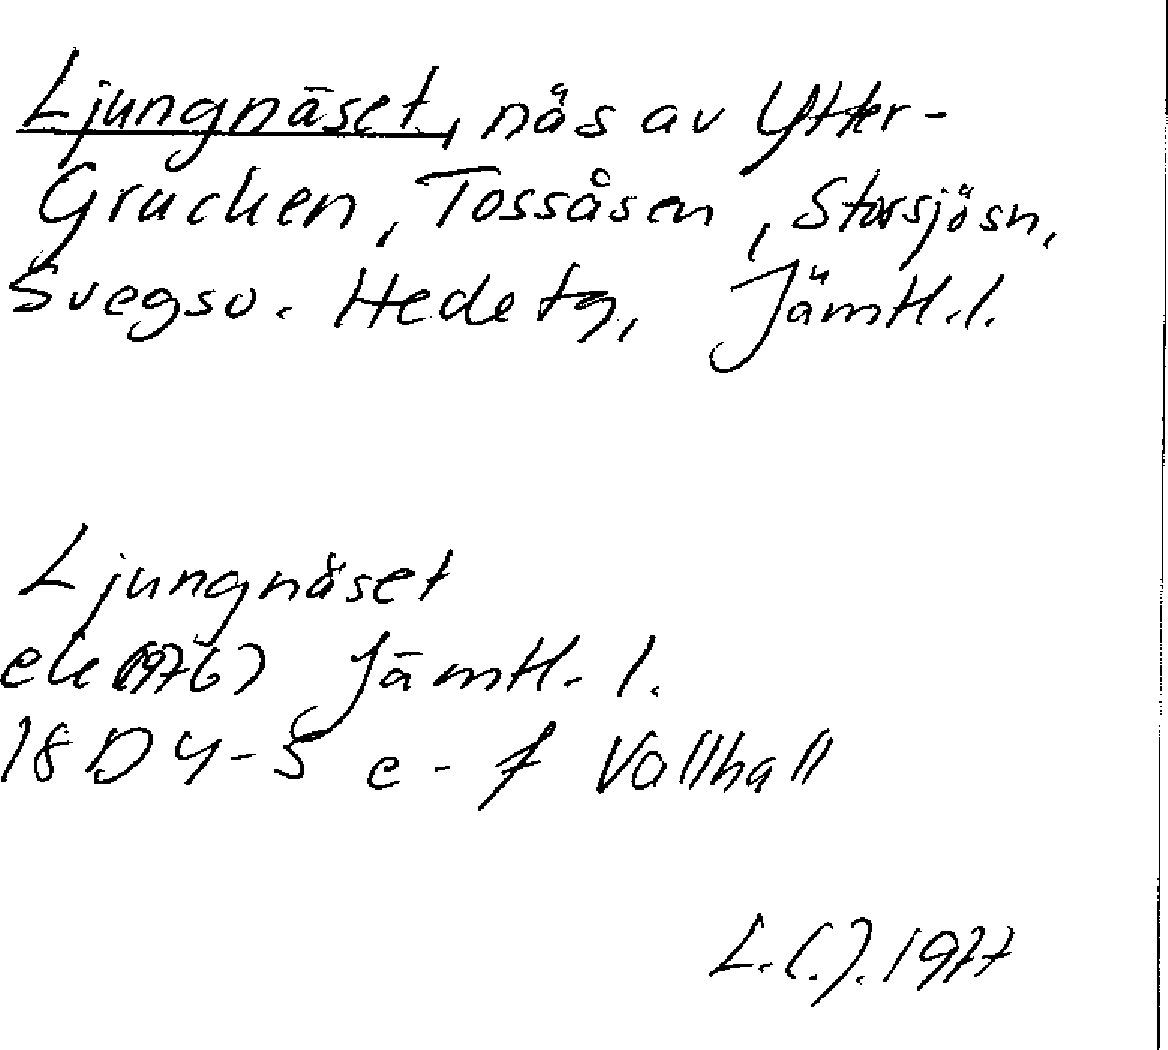 Ljungnäset, näs av Ytter-
Grucken, Tossåsen, Storsjösn,
Svegso. Hede tg, Jämtl.l.
Ljungnäset
ek (1976) Jämtl. l.
18D 4-5 e-f Vallhall
L.C.J. 1977